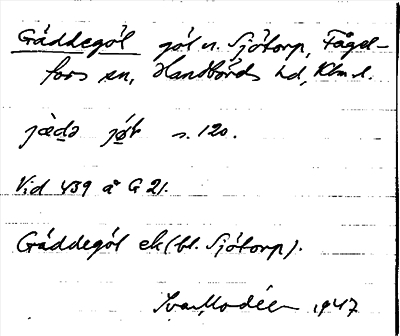 Gäddegöl göl n. Sjötorp, Fågel-
fors sn, Handbörds hd, Klm. l.
s. 120.
Vid 439 å G 21.
Gäddegöl ek (bl. Sjötorp).
Ivar Modéer 1947